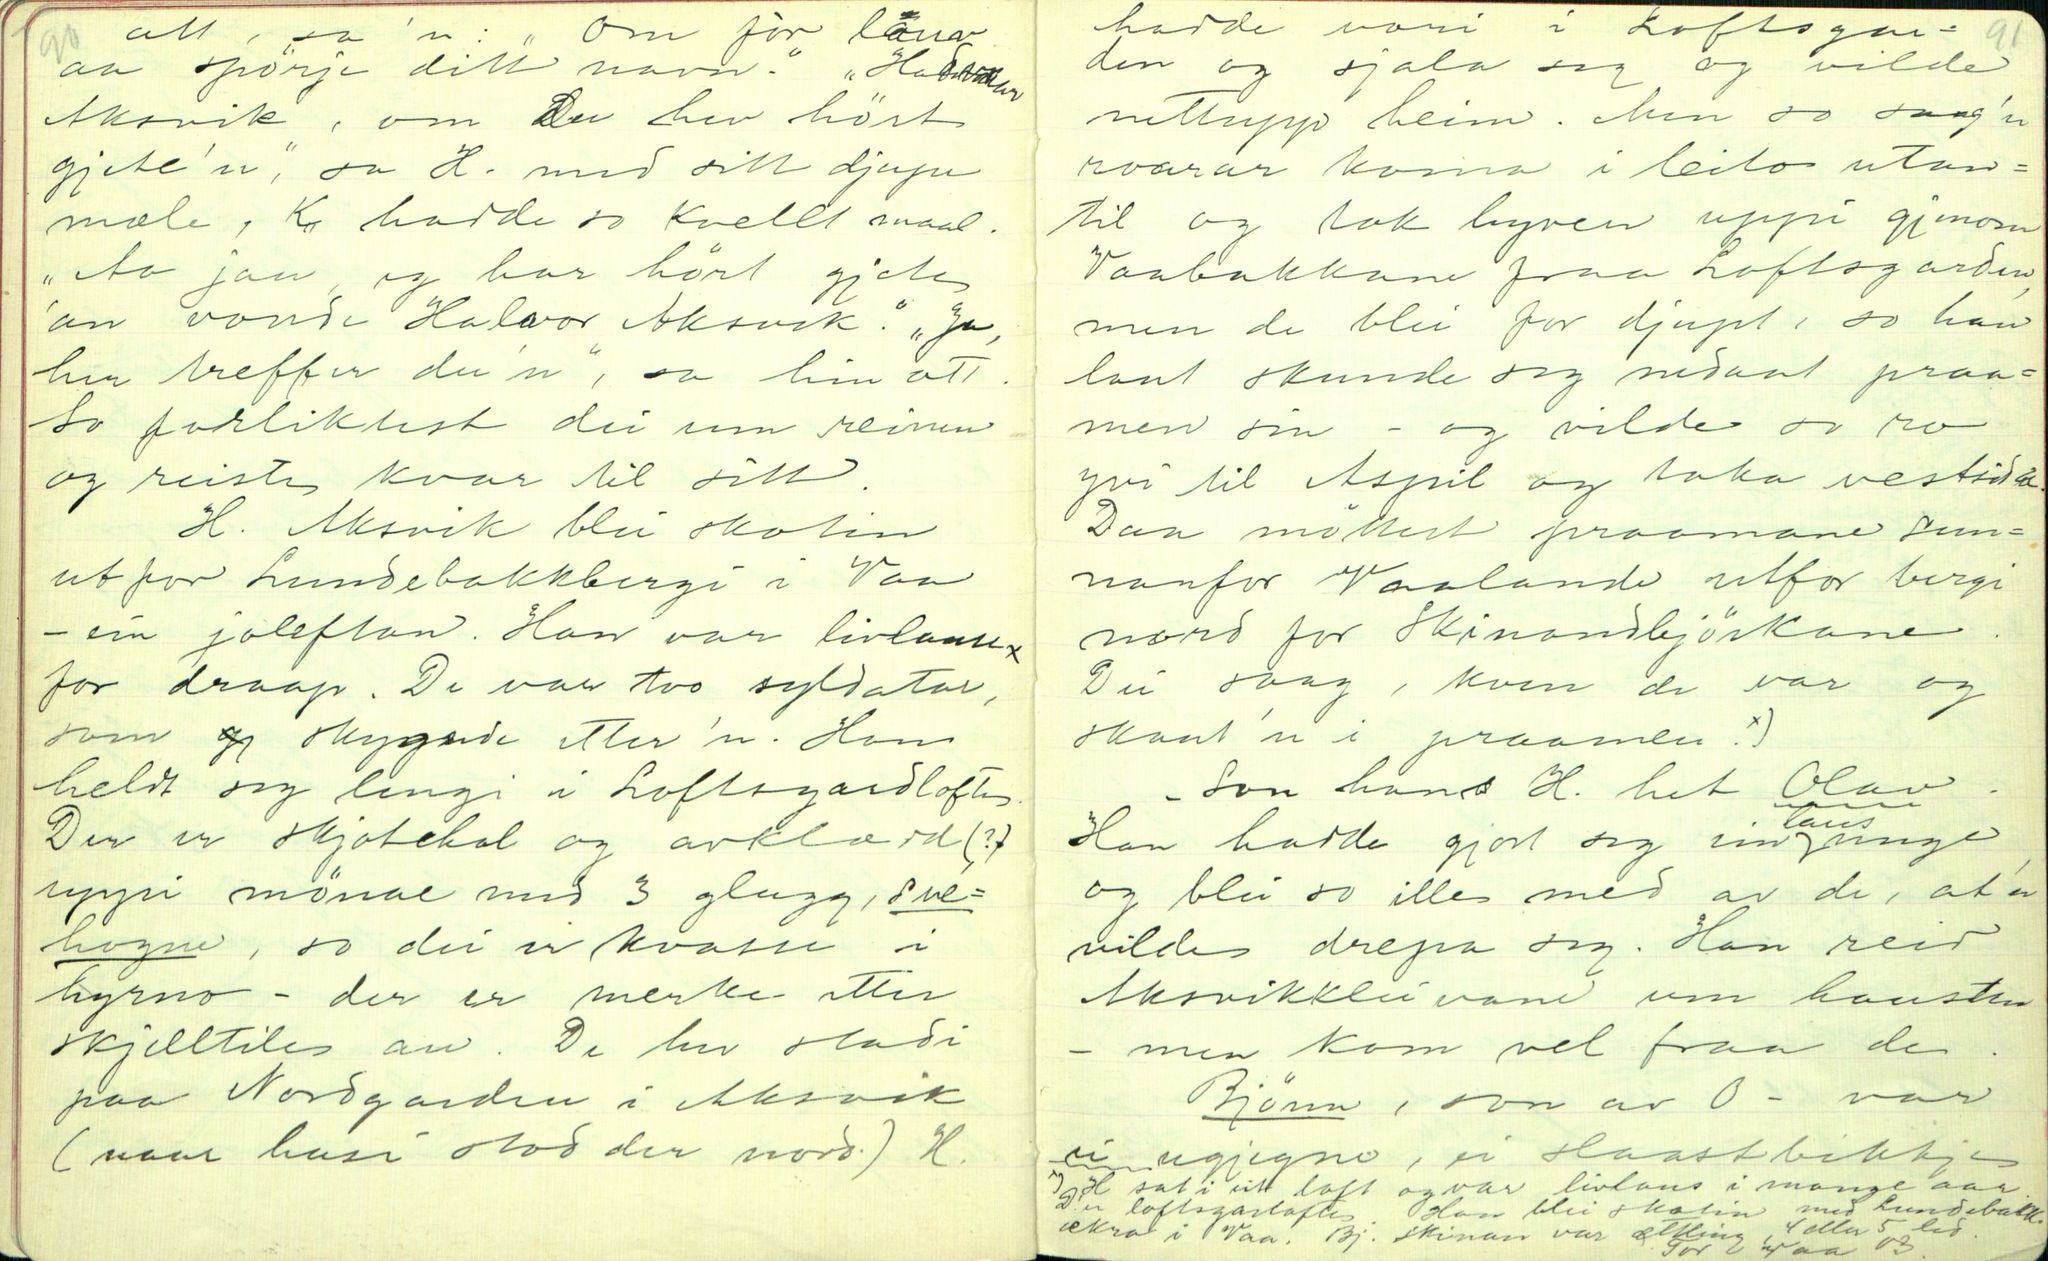 90
att, sa 'n: „Om før lauv
aa spörje ditt navn." „Halvor
Aksvik, om Du hev hört
gjete'n", sa H. med sitt djupe
mæle, K. hadde so kvellt maal.
„Aa jau, eg har hört gjete
'an vonde Halvor Aksvik." „Ja,
her treffer du 'n", sa hin att.
So forliktest dei um reinen
og reiste kvar til sitt.
H. Aksvik blei skotin
ut for Lundebakkbergi i Vaa
- ein joleftan. Han var livlaus x
for draap. De var tvo syldatar,
som skyggede etter 'n. Han
heldt seg lengi i Loftsgardlofte.
Der er skjotehol og avklædd (?)
uppi mönae med 3 glugg, sve=
hogne, so dei er kvasse i
hyrno - der er merke etter
skjelltiles au. De hev stadi
paa Nordgarden i Aksvik
(naar husi stod der nord.) H.
91
hadde vori i Loftsgar=
den og sjala seg og vilde
nettupp heim. Men so saag'n
roarar koma i leito utan=
til og tok hyven uppi gjenom
Vaabakkane fraa Loftsgarden,
men de blei for djupt, so han
laut skunde seg nedaat praa=
men sin - og vilde so ro
yvi til Aspil og taka vestsida.
Daa möttest praamane sun=
nanfor Vaalande utfor bergi
nord for Skinandbjörkane.
Dei saag, kven de var og
skaut 'n i praamen. x)
- Son hans H. het Olav.
Han hadde gjort seg ein laus unge
og blei so ille med av de, at'n
vilde drepa seg. Han reid
Aksvikkleivane um hausten
- men kom vel fraa de.
Björn, son av O - var
ei ugjegne, ei slaastbikkje
x) H sat i eit loft og var livlaus i mange aar
D. er loftsgarlofte. Han blei skotin med Lundebakk-
ekra i Vaa. Bj. Skinan var ættling, 4 eller 5 led.
Tor Vaa 03.